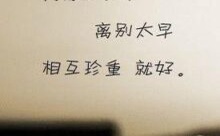 离别太早
相互珍重 就好。